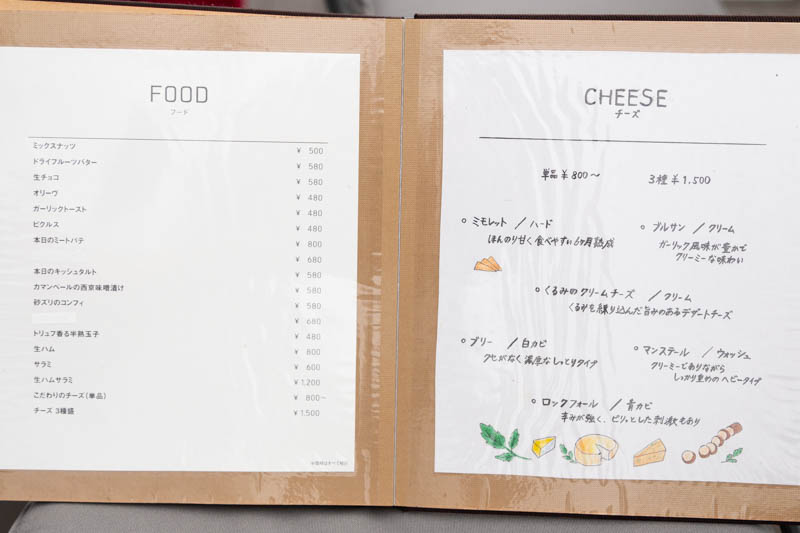 FOOD
フード
ミックスナッツ ¥ 500
ドライフルーツバター ¥ 580
生チョコ ¥ 580
オリーヴ ¥ 480
ガーリックトースト ¥ 480
ピクルス ¥ 480
本日のミートパテ ¥ 800
¥ 680
本日のキッシュタルト ¥ 580
カマンベールの西京味噌漬け ¥ 580
砂ズリのコンフィ ¥ 580
¥ 680
トリュフ香る半熟玉子 ¥ 480
生ハム ¥ 800
サラミ ¥ 600
生ハムサラミ ¥ 1,200
こだわりのチーズ(単品) ¥ 800~
チーズ 3種盛 ¥ 1,500
CHEESE
チーズ
単品 ¥800〜 3種 ¥1,500
○ ミモレット / ハード
ほんのり甘く食べやすい6ヶ月熟成
○ ブルサン / クリーム
ガーリック風味が豊かで
クリーミーな味わい
○ くるみのクリームチーズ / クリーム
くるみを練り込んだ旨みのあるデザートチーズ
○ ブリー / 白カビ
クセがなく濃厚なしっとりタイプ
○ マンステール / ウォッシュ
クリーミーでありながら
しっかり重めのヘビータイプ
○ ロックフォール / 青カビ
辛みが強く、ピリッとした刺激もあり